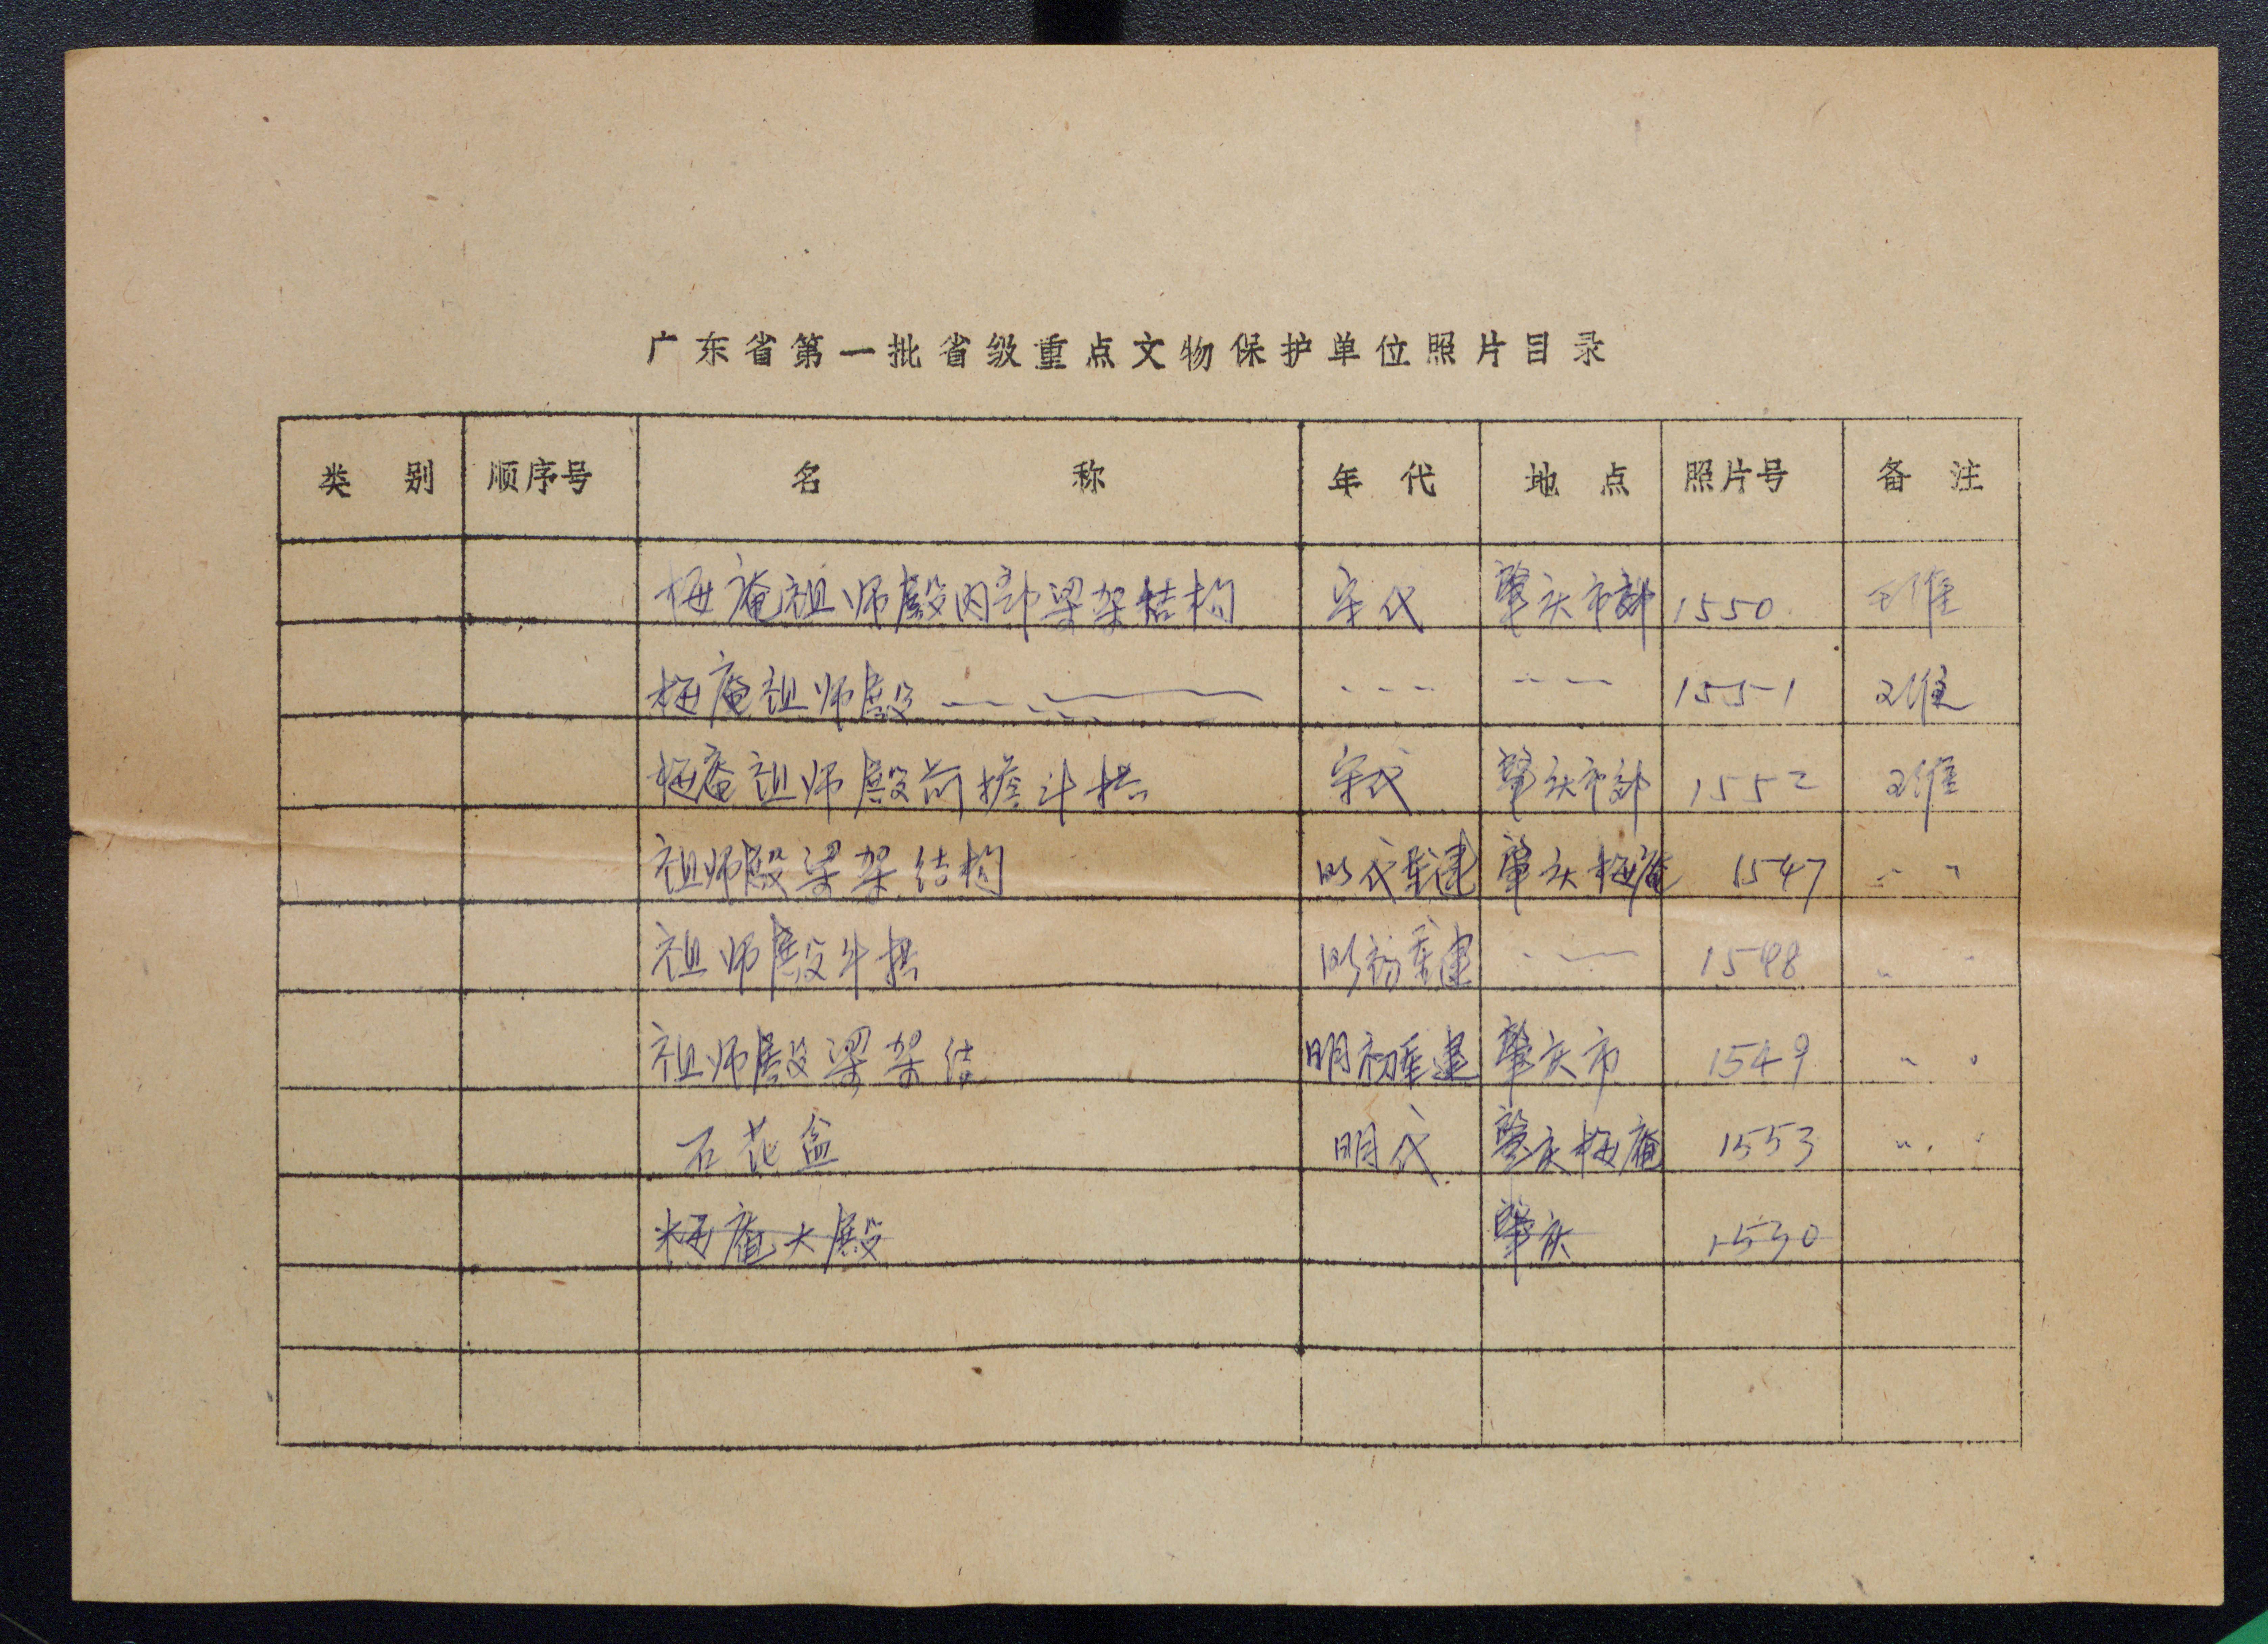 广东省第一批省级重点文物保护单位照片目录
类别 顺序号 名称 年代 地点 照片号 备注
梅庵祖师殿内部梁架结构 宋代 肇庆市郊 1550
梅庵祖师殿 1551
梅庵祖师殿前擔斗拱 宋代 肇庆市郊 1552
祖师殿梁架结构 明代重建 肇庆梅庵 1547 〃
祖师殿斗拱 明初重建 1548 〃
祖师殿梁架结 明初重建 肇庆市 1549 〃
石花盆 明代 肇庆梅庵 1553 〃
梅庵大殿 肇庆 1530